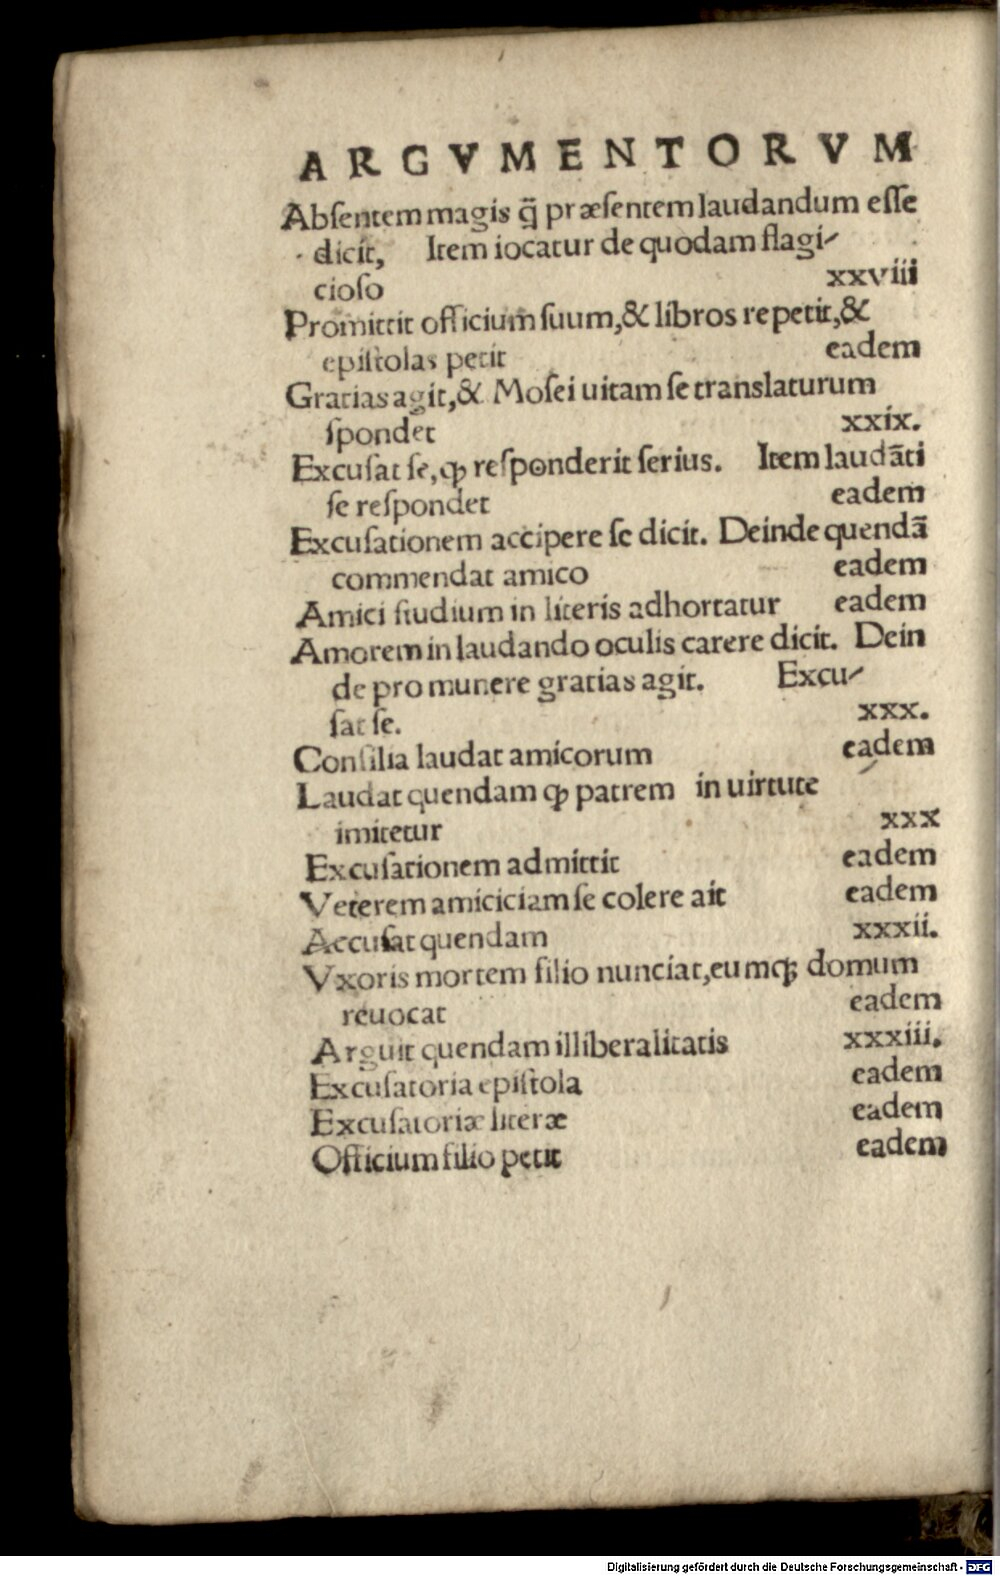 ARGVMENTORVM
Abſentem magis q̃ præſentem laudandum eſſe
dicit, Item iocatur de quodam flagi-
cioſo xxviii
Promittit officium ſuum,& libros repetit,&
epiſtolas petit eadem
Gratias agit,& Moſei uitam ſe translaturum
ſpondet xxix.
Excuſat ſe,ꝙ reſponderit ſerius. Item laudãti
ſe reſpondet eadem
Excuſationem accipere ſe dicit. Deinde quendã
commendat amico eadem
Amici ſtudium in literis adhortatur eadem
Amorem in laudando oculis carere dicit. Dein
de pro munere gratias agit. Excu-
ſat ſe. xxx.
Conſilia laudat amicorum eadem
Laudat quendam ꝙ patrem in uirtute
imitetur xxx
Excuſationem admittit eadem
Veterem amiciciam ſe colere ait eadem
Accuſat quendam xxxii.
Vxoris mortem filio nunciat,eumq; domum
reuocat eadem
Arguit quendam illiberalitatis xxxiii.
Excuſatoria epiſtola eadem
Excuſatoriæ literæ eadem
Officium filio petit eadem
Digitalisierung gefördert durch die Deutsche Forschungsgemeinschaft - DFG